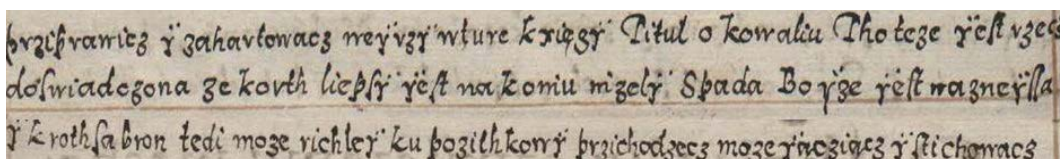 prziprawicz ÿ zahartowacz weÿrzÿ wture kxięgÿ Titul o kowaliu Tho tcze ÿest rzecz
doswiadczona ze korth liepszÿ ÿest na koniu nizelÿ Spada Bo ÿze ÿest wazneÿssa
ÿ krothsa bron tedi moze richleÿ ku pozithkowÿ przichodzecz moze ÿączięcz ÿ stichowacz